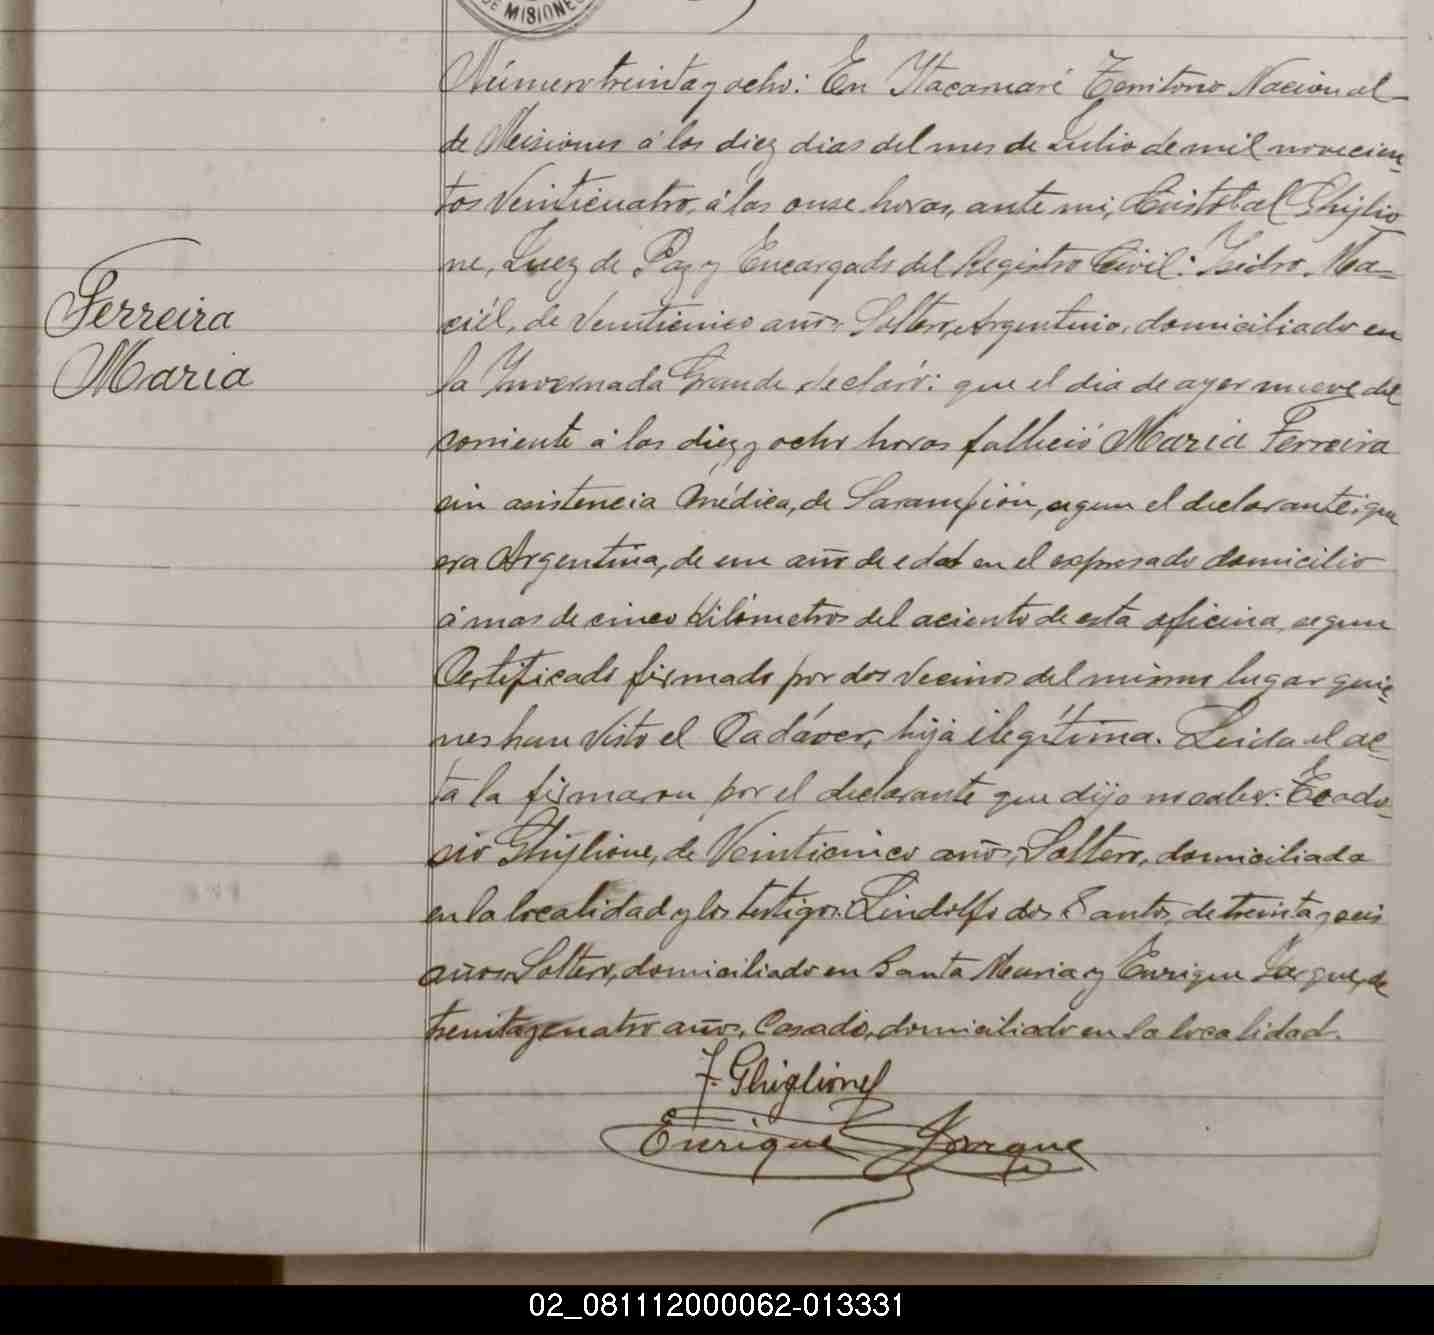 DE MISIONES
Número treinta y ocho: En Itacaruaré Territorio Nacional
de Misiones á los diez dias del mes de Julio de mil novecien-
tos Veinticuatro, á las onse horas, ante mi, Cristobal Ghiglio
ne, Juez de Paz y Encargado del Registro Civil: Isidro Ma-
ciél, de Veinticinco años, Soltero, Argentino, domiciliado en
la Invernada Grande declaró: que el dia de ayer nueve del
corriente á las diez y ocho horas falleció Maria Ferreira
Ferreira
sin asistencia Médica, de Sarampión, segun el declarante; que
Maria
era Argentina, de un año de edad en el expresado domicilio
á mas de cinco Kilómetros del aciento de esta oficina, segun
Certificado firmado por dos Vecinos del mismo lugar quie-
nes han Visto el Cadáver, hija ilegítima. Leida el ac-
ta la firmaron por el declarante que dijo no saber: Teodo-
cio Ghiglione, de Veinticinco años, Soltero, domiciliado
en la localidad y los testigos: Lindolfo dos Santos, de treinta y seis
años, Soltero, domiciliado en Santa Maria y Enrique Jarque, de
treinta y cuatro años, Casado, domiciliado en la localidad.
T. Ghiglione
Enrique Jarque
02_081112000062-013331